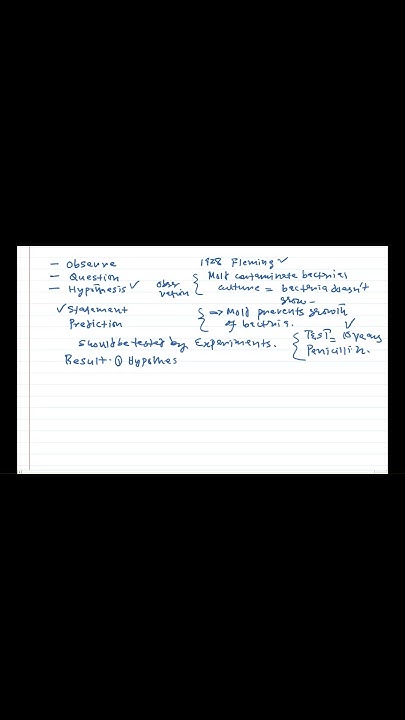 - Observe
- Question
- Hypothesis ✓
✓ Statement
Prediction
1928 Fleming ✓
Observation { Mold contaminate bacterial
culture = bacteria doesn't
grow -
{ => Mold prevents growth
of bacteria.
should be tested by Experiments.
{ TEST = 10 years
Penicillin.
Result. ① Hypothes